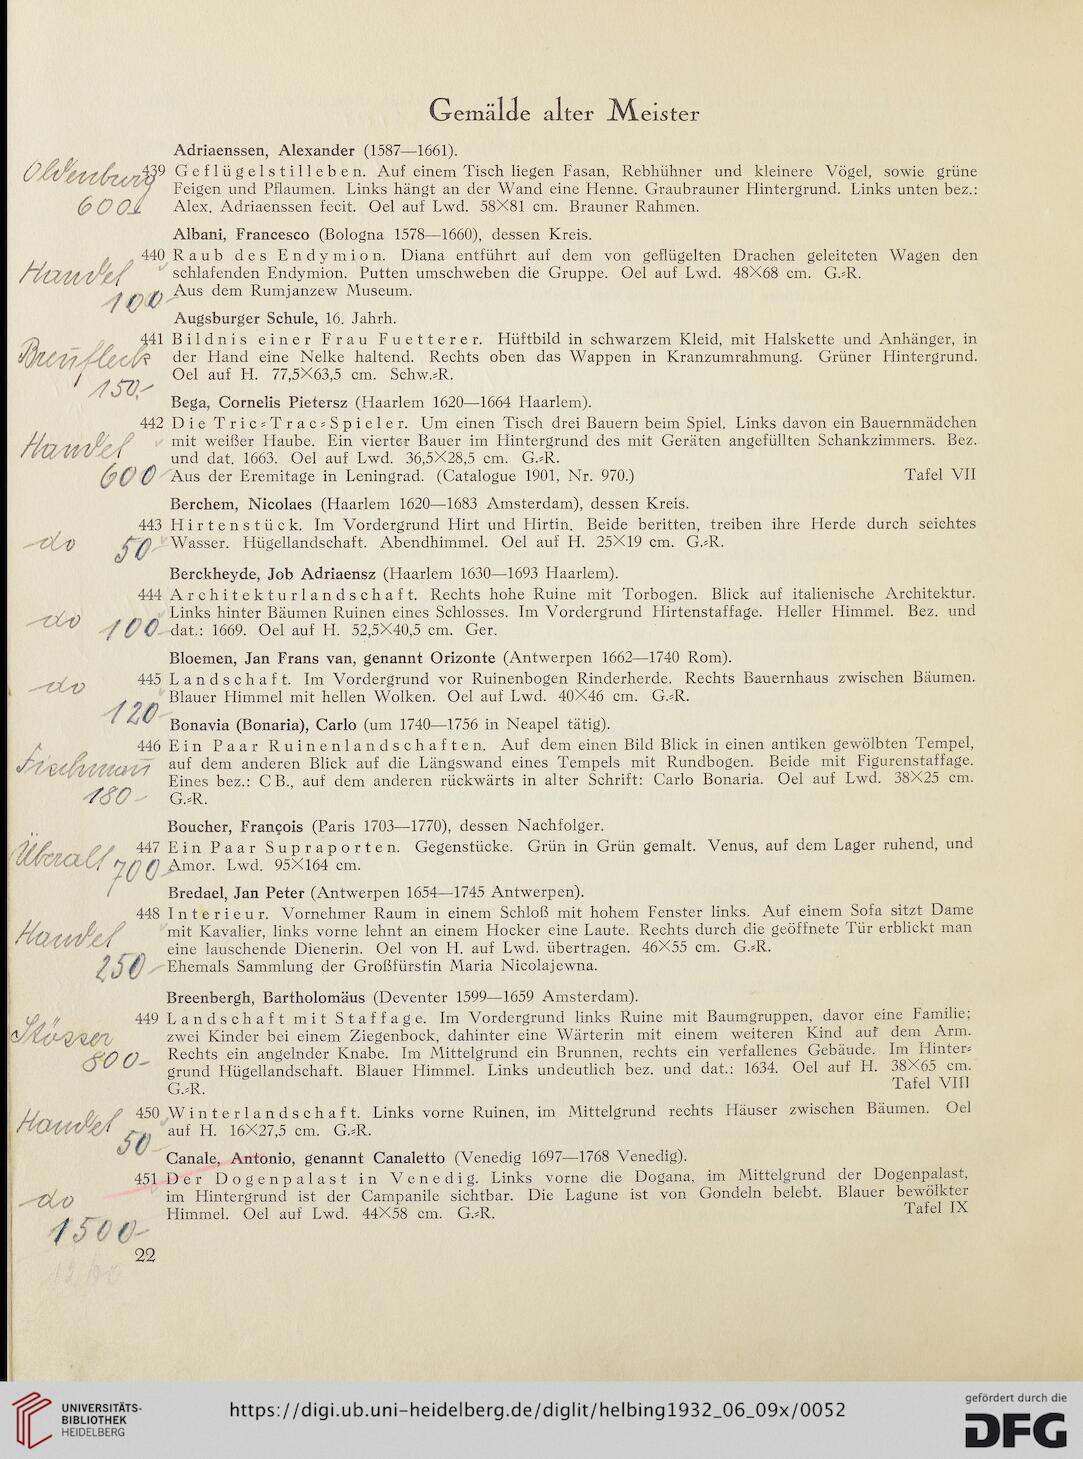 Gemälde alter Meister
Adriaenssen, Alexander (1587—1661).
Oldenburg 439 Geflügelstilleben. Auf einem Tisch liegen Fasan, Rebhühner und kleinere Vögel, sowie grüne
Feigen und Pflaumen. Links hängt an der Wand eine Henne. Graubrauner Hintergrund. Links unten bez.:
600.- Alex. Adriaenssen fecit. Oel auf Lwd. 58×81 cm. Brauner Rahmen.
Albani, Francesco (Bologna 1578—1660), dessen Kreis.
440 Raub des Endymion. Diana entführt auf dem von geflügelten Drachen geleiteten Wagen den
Handel schlafenden Endymion. Putten umschweben die Gruppe. Oel auf Lwd. 48×68 cm. G.=R.
100- Aus dem Rumjanzew Museum.
Augsburger Schule, 16. Jahrh.
441 Bildnis einer Frau Fuetterer. Hüftbild in schwarzem Kleid, mit Halskette und Anhänger, in
der Hand eine Nelke haltend. Rechts oben das Wappen in Kranzumrahmung. Grüner Hintergrund.
150.- Oel auf H. 77,5×63,5 cm. Schw.=R.
Bega, Cornelis Pietersz (Haarlem 1620—1664 Haarlem).
442 Die Tric=Trac=Spieler. Um einen Tisch drei Bauern beim Spiel. Links davon ein Bauernmädchen
Handel mit weißer Haube. Ein vierter Bauer im Hintergrund des mit Geräten angefüllten Schankzimmers. Bez.
und dat. 1663. Oel auf Lwd. 36,5×28,5 cm. G.=R.
600- Aus der Eremitage in Leningrad. (Catalogue 1901, Nr. 970.) Tafel VII
Berchem, Nicolaes (Haarlem 1620—1683 Amsterdam), dessen Kreis.
443 Hirtenstück. Im Vordergrund Hirt und Hirtin. Beide beritten, treiben ihre Herde durch seichtes
do 50- Wasser. Hügellandschaft. Abendhimmel. Oel auf H. 25×19 cm. G.=R.
Berckheyde, Job Adriaensz (Haarlem 1630—1693 Haarlem).
444 Architekturlandschaft. Rechts hohe Ruine mit Torbogen. Blick auf italienische Architektur.
do Links hinter Bäumen Ruinen eines Schlosses. Im Vordergrund Hirtenstaffage. Heller Himmel. Bez. und
100- dat.: 1669. Oel auf H. 52,5×40,5 cm. Ger.
Bloemen, Jan Frans van, genannt Orizonte (Antwerpen 1662—1740 Rom).
do 445 Landschaft. Im Vordergrund vor Ruinenbogen Rinderherde. Rechts Bauernhaus zwischen Bäumen.
Blauer Himmel mit hellen Wolken. Oel auf Lwd. 40×46 cm. G.=R.
120- Bonavia (Bonaria), Carlo (um 1740—1756 in Neapel tätig).
446 Ein Paar Ruinenlandschaften. Auf dem einen Bild Blick in einen antiken gewölbten Tempel,
Fischmann auf dem anderen Blick auf die Längswand eines Tempels mit Rundbogen. Beide mit Figurenstaffage.
Eines bez.: CB., auf dem anderen rückwärts in alter Schrift: Carlo Bonaria. Oel auf Lwd. 38×25 cm.
180- G.=R.
Boucher, François (Paris 1703—1770), dessen Nachfolger.
Überall 447 Ein Paar Supraporten. Gegenstücke. Grün in Grün gemalt. Venus, auf dem Lager ruhend, und
700 Amor. Lwd. 95×164 cm.
Bredael, Jan Peter (Antwerpen 1654—1745 Antwerpen).
448 Interieur. Vornehmer Raum in einem Schloß mit hohem Fenster links. Auf einem Sofa sitzt Dame
Handel mit Kavalier, links vorne lehnt an einem Hocker eine Laute. Rechts durch die geöffnete Tür erblickt man
eine lauschende Dienerin. Oel von H. auf Lwd. übertragen. 46×55 cm. G.=R.
250- Ehemals Sammlung der Großfürstin Maria Nicolajewna.
Breenbergh, Bartholomäus (Deventer 1599—1659 Amsterdam).
449 Landschaft mit Staffage. Im Vordergrund links Ruine mit Baumgruppen, davor eine Familie;
Stösser zwei Kinder bei einem Ziegenbock, dahinter eine Wärterin mit einem weiteren Kind auf dem Arm.
800- Rechts ein angelnder Knabe. Im Mittelgrund ein Brunnen, rechts ein verfallenes Gebäude. Im Hinter=
grund Hügellandschaft. Blauer Himmel. Links undeutlich bez. und dat.: 1634. Oel auf H. 38×65 cm.
G.=R. Tafel VIII
Handel 450 Winterlandschaft. Links vorne Ruinen, im Mittelgrund rechts Häuser zwischen Bäumen. Oel
50- auf H. 16×27,5 cm. G.=R.
Canale, Antonio, genannt Canaletto (Venedig 1697—1768 Venedig).
451 Der Dogenpalast in Venedig. Links vorne die Dogana, im Mittelgrund der Dogenpalast,
do im Hintergrund ist der Campanile sichtbar. Die Lagune ist von Gondeln belebt. Blauer bewölkter
1500- Himmel. Oel auf Lwd. 44×58 cm. G.=R. Tafel IX
22
UNIVERSITÄTS-
BIBLIOTHEK
HEIDELBERG
https://digi.ub.uni-heidelberg.de/diglit/helbing1932_06_09x/0052
gefördert durch die
DFG